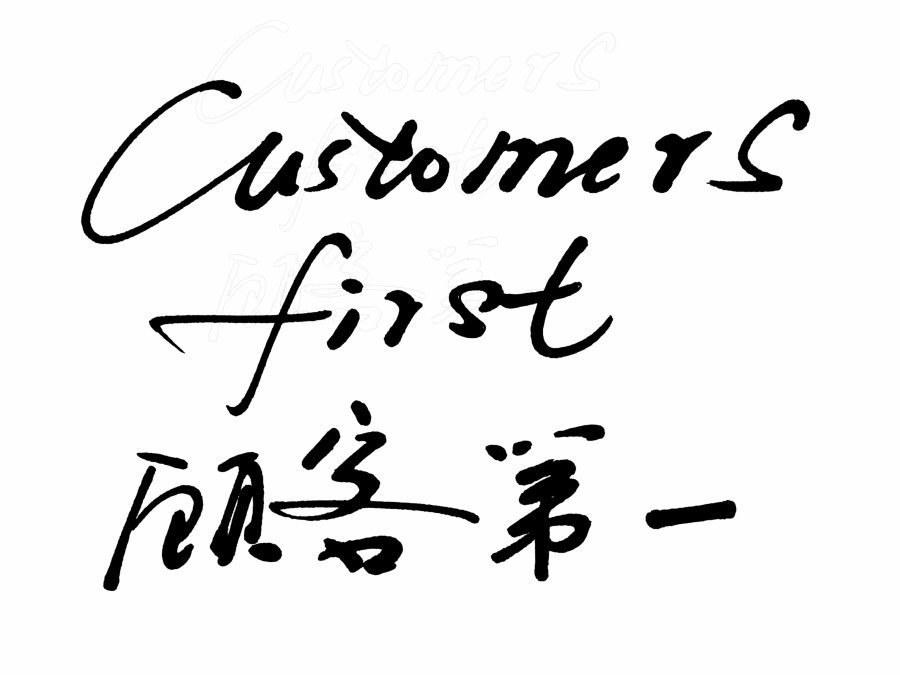 Customers
first
顾客第一